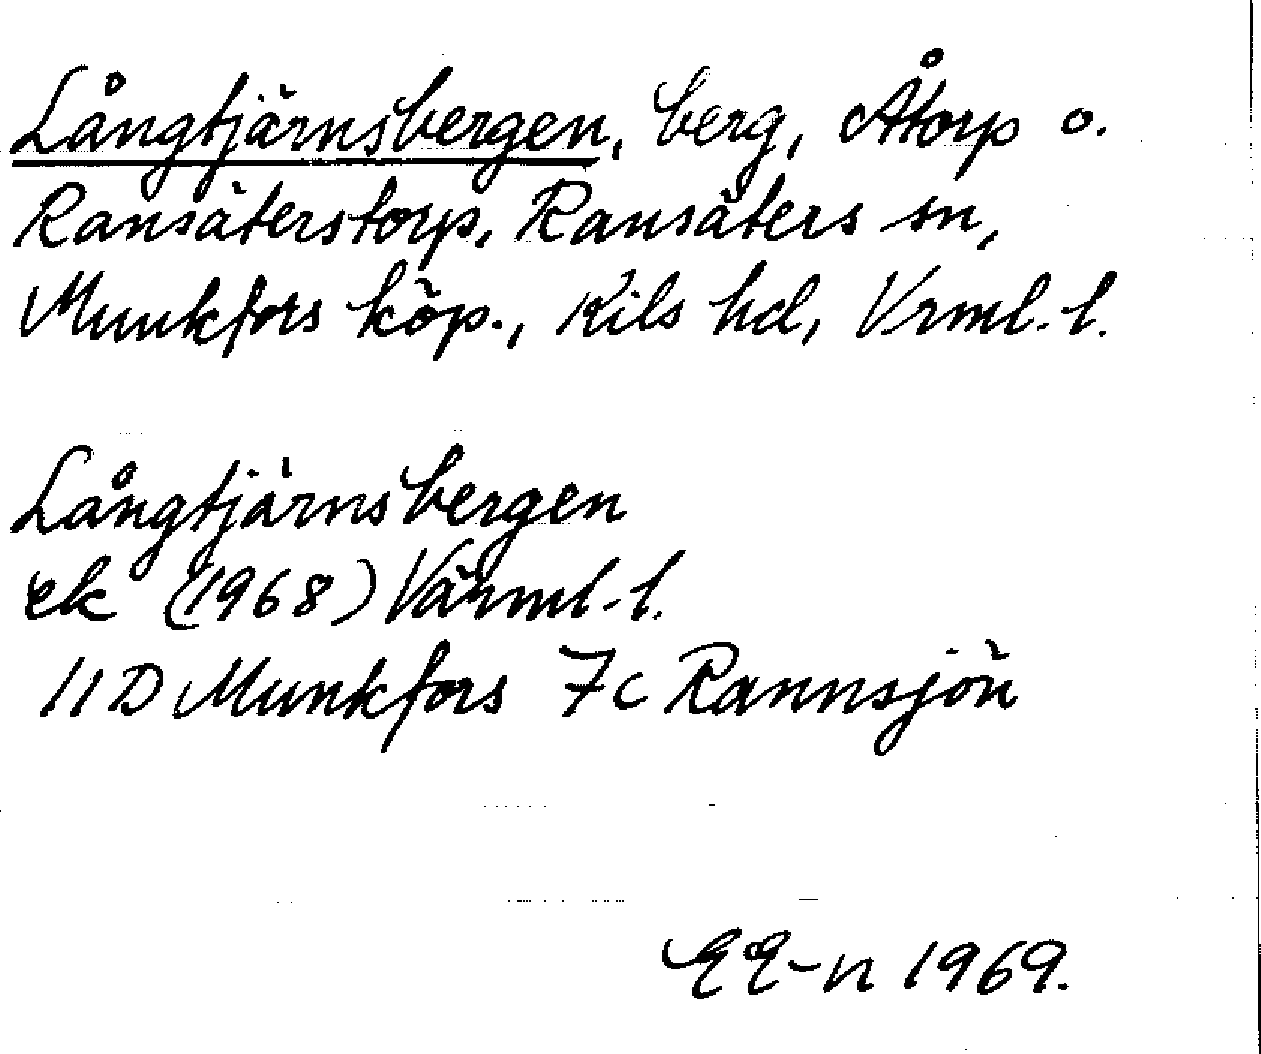 Långtjärnsbergen, berg, Åtorp o.
Ransäterstorp, Ransäters sn,
Munkfors köp., Kils hd, Vrml. l.
Långtjärnsbergen
ek (1968) Värml. l.
11D Munkfors 7c Rannsjön
EE-n 1969.